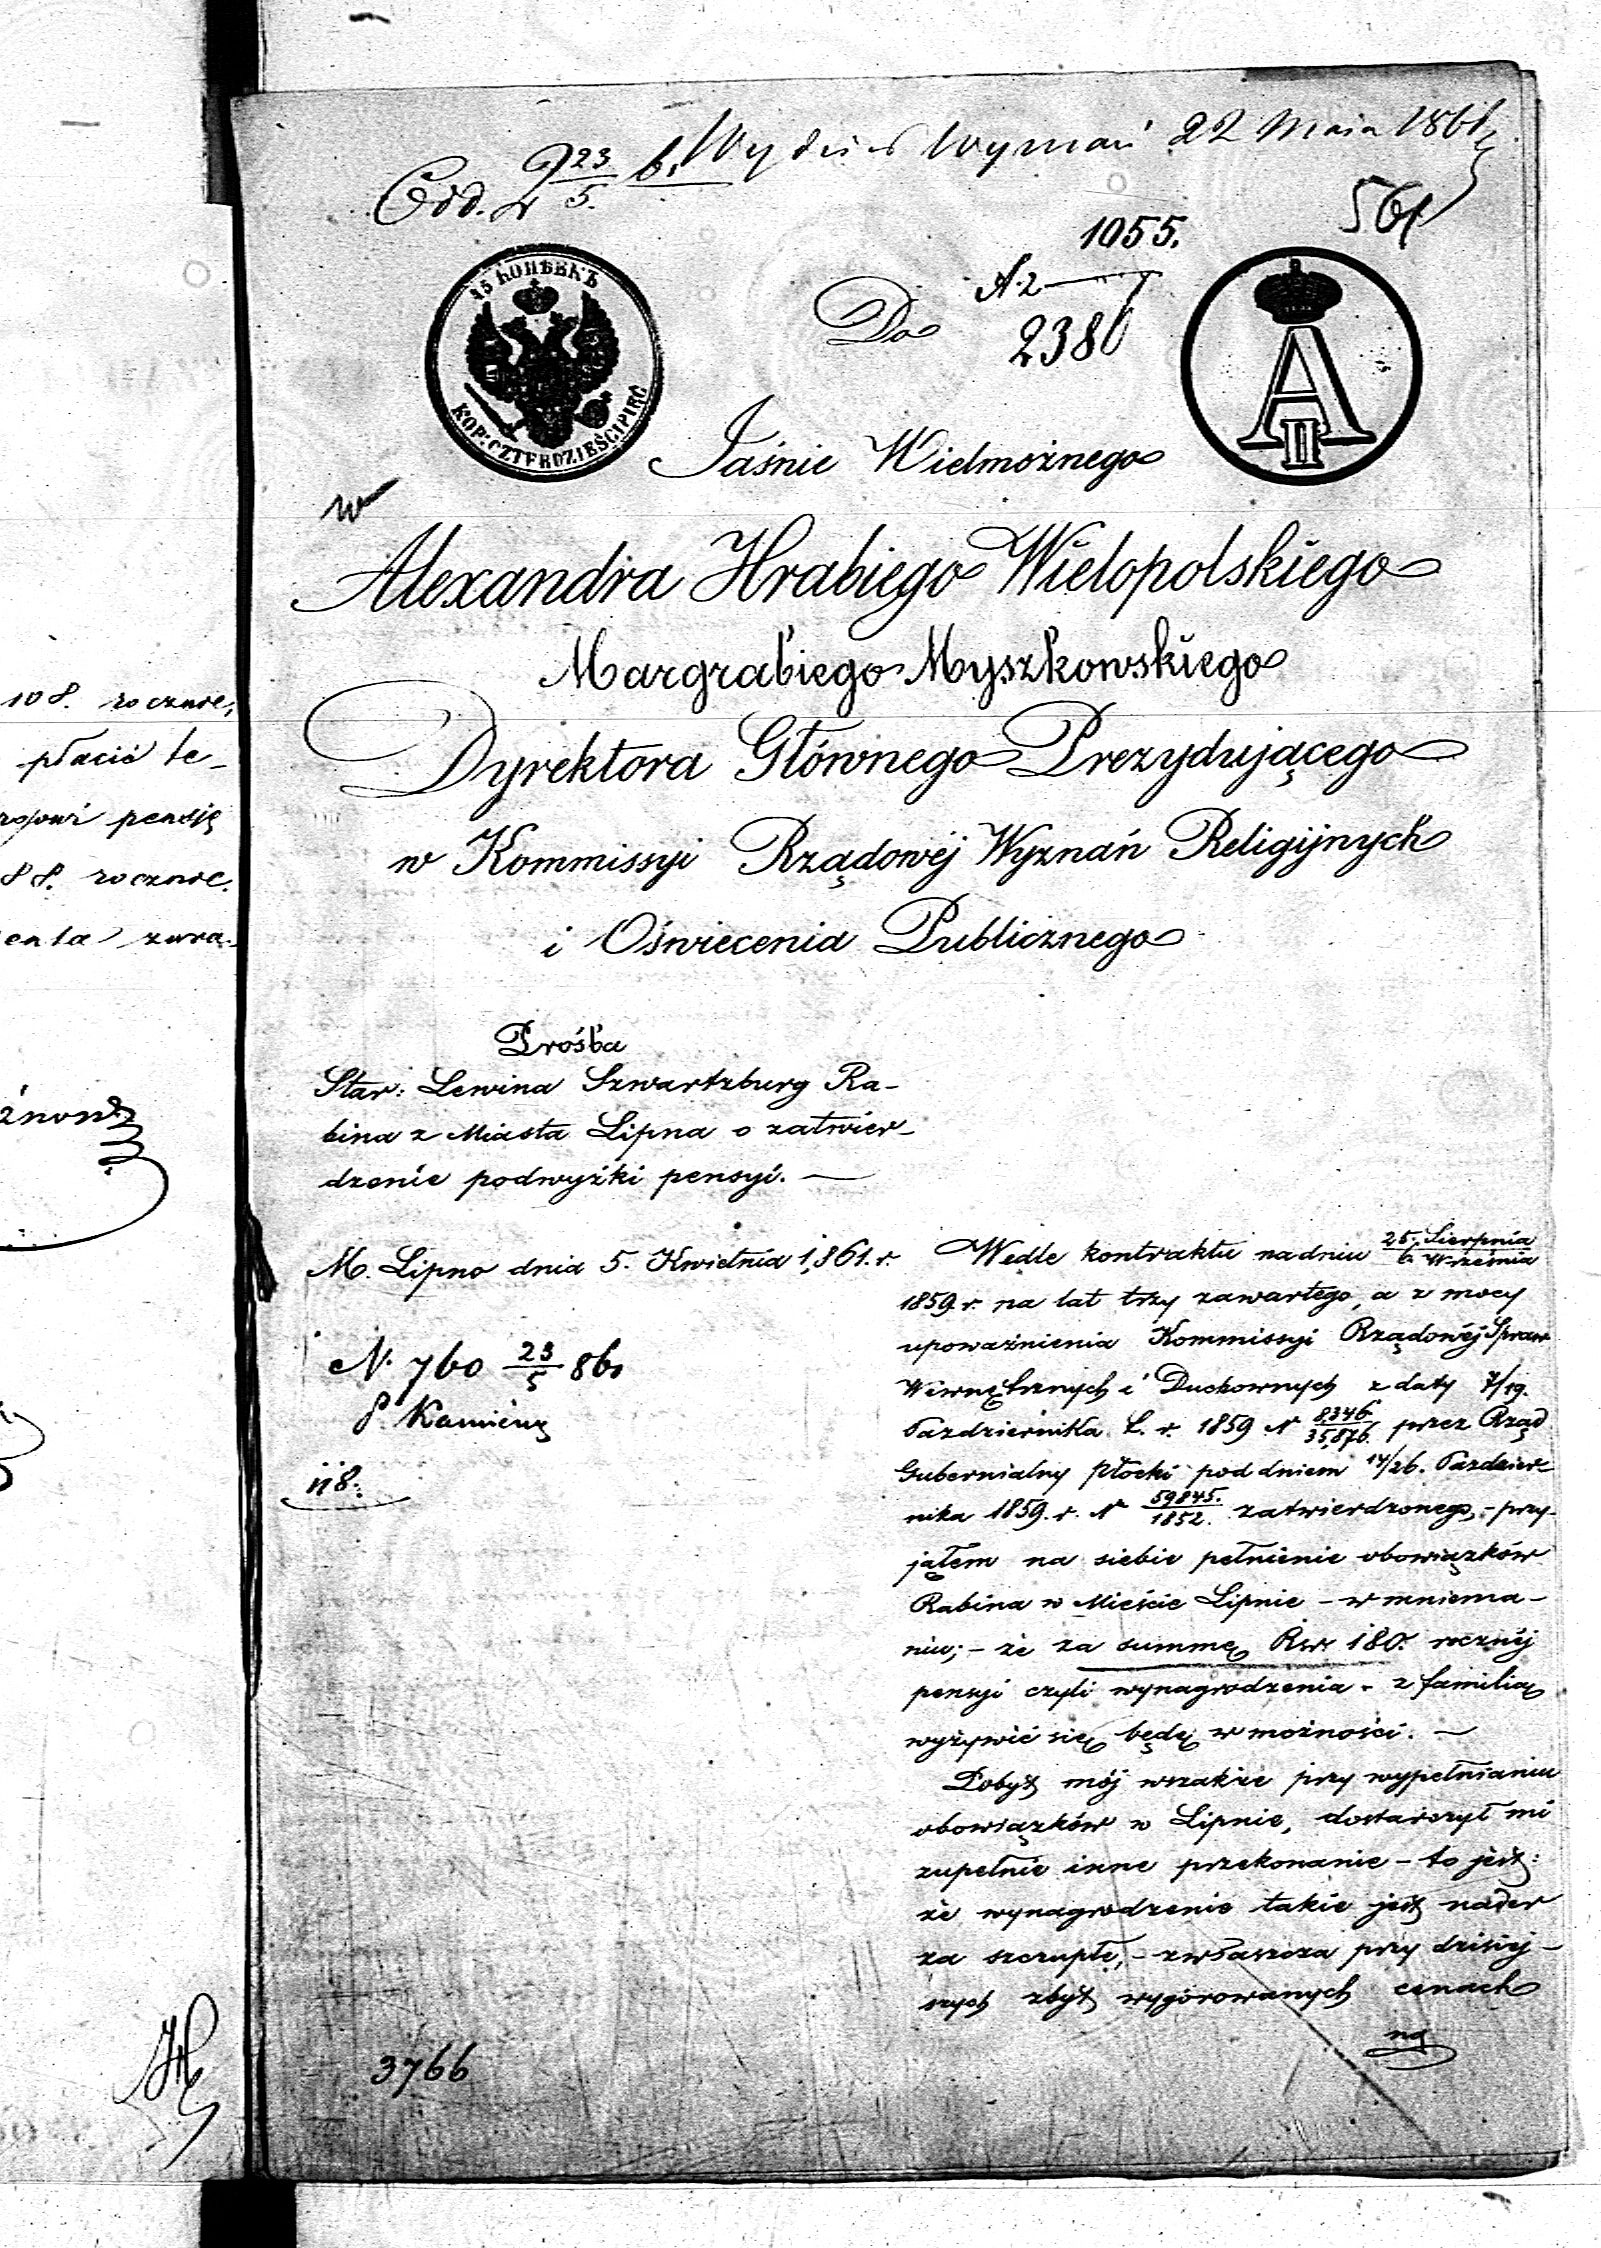 Wydział Wyznań 22 Maja 1861
Odd. 2 23/5 61
561
1055.
2380
45 КОПѢЕКЪ
KOP: CZTERDZIEŚCI PIĘĆ
A II
Do
Jaśnie Wielmożnego
w
Alexandra Hrabiego Wielopolskiego
Margrabiego Myszkowskiego
Dyrektora Głównego Prezydującego
w Kommissyi Rządowéj Wyznań Religijnych
i Oświecenia Publicznego
108. rocznie,
płacić te-
pensję
88. rocznie.
Prośba
Star: Lewina Szwartzburg Ra-
bina z Miasta Lipna o zatwier-
dzenie podwyżki pensyi. —
M. Lipno dnia 5. Kwietnia 1861. r.
N. 760 23/5 861
P. Kamieny
118.
Wedle kontraktu na dniu 25. Sierpnia / 6. Września
1859 r. na lat trzy zawartego, a z mocy
upoważnienia Kommissyi Rządowéj Spraw
Wewnętrznych i Duchownych z daty 7/19.
Pazdziernika t. r. 1859 N 8346/35,876. przez Rząd
Gubernialny Płocki pod dniem 14/26. Pazdzier-
nika 1859. r. N 59845./1852. zatwierdzonego, - przy-
jąłem na siebie pełnienie obowiązków
Rabina w Mieście Lipnie - w mniema-
niu; - że za summę Rsr. 180. rocznéj
pensyi czyli wynagrodzenia - z familią
wyżywić się będę w możności. —
Pobyt mój wszakże przy wypełnianiu
obowiązków w Lipnie, dostarczył mi
zupełnie inne przekonanie - to jest:
że wynagrodzenie takie jest nader
za szczupłe, - zwłaszcza przy dzisiej-
szych zbyt wygórowanych cenach
na
3766